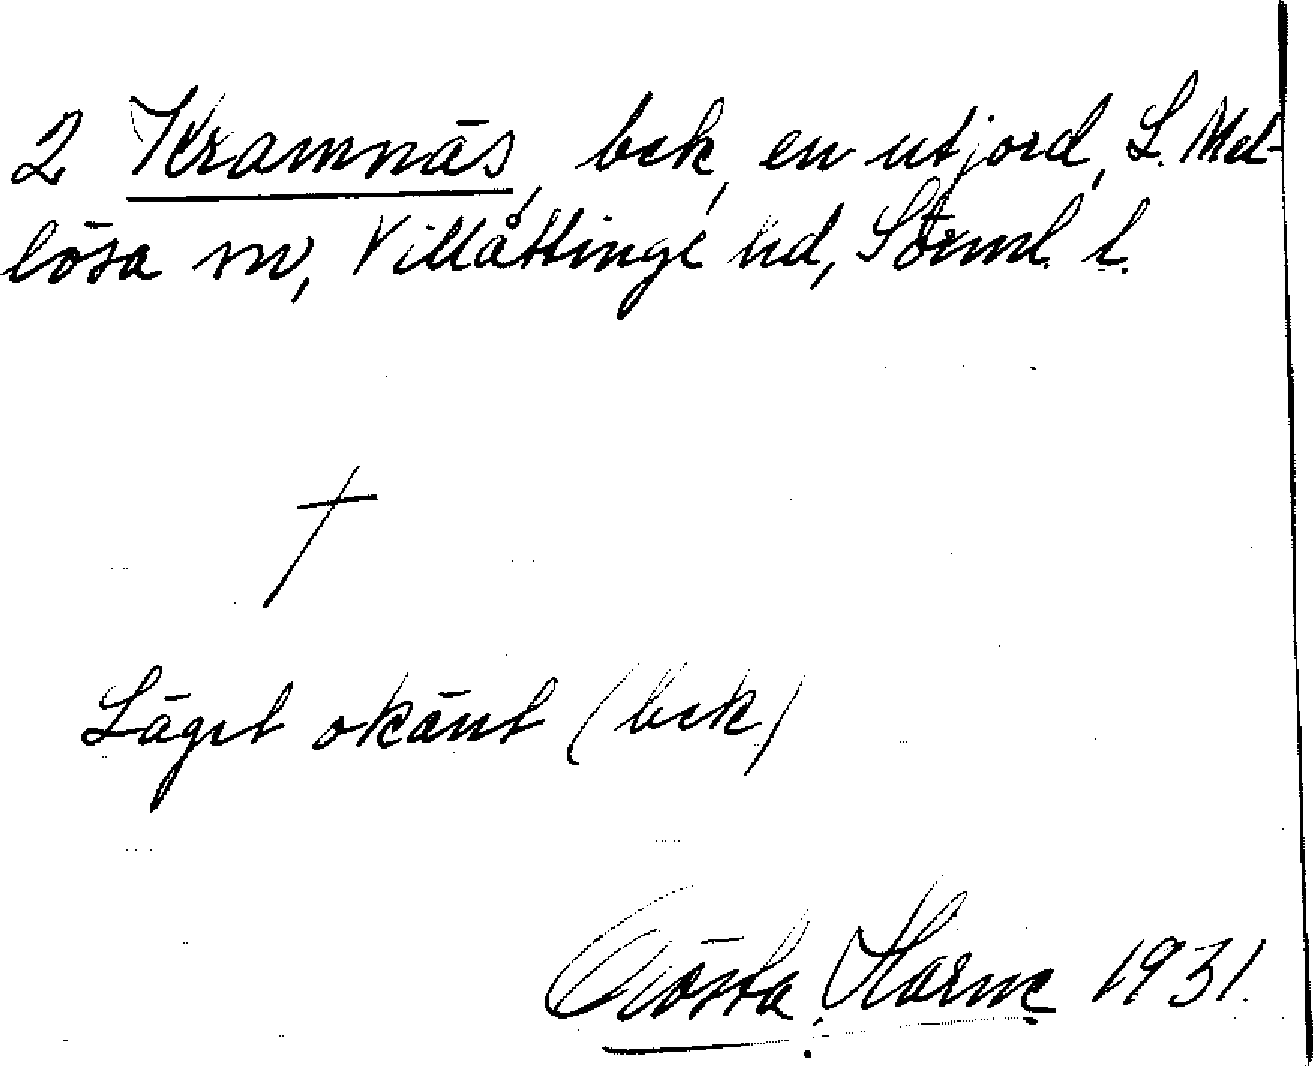 2 Kramnäs, bek, en utjord, L. Mel-
lösa sn, Villåttinge hd, Sörml. l.
†
Läget okänt (bek)
Gösta Horne 1931.